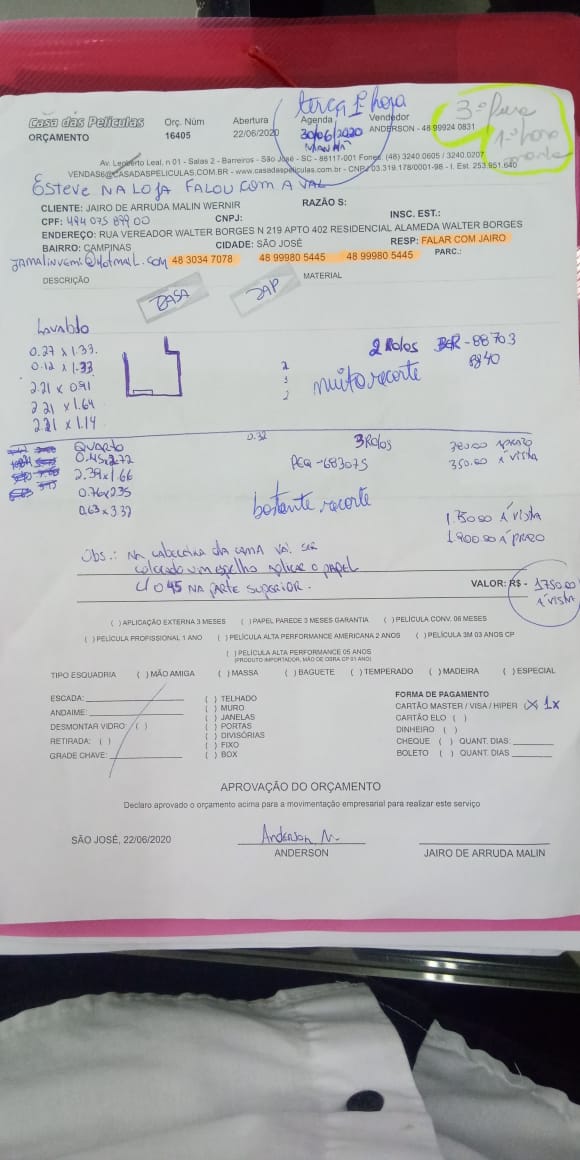 terça 1ª hora
3ª feira
1ª hora
Casa das Películas
ORÇAMENTO
Orç. Núm
16405
Abertura
22/06/2020
Agenda
30/06/2020
MANHÃ
Vendedor
ANDERSON - 48 99924 0831
Av. Leoberto Leal, n 01 - Salas 2 - Barreiros - São José - SC - 88117-001 Fones: (48) 3240.0605 / 3240.0207
VENDAS6@CASADASPELICULAS.COM.BR - www.casadaspeliculas.com.br - CNPJ 03.319.178/0001-98 - I. Est. 253.951.640
ESTEVE NA LOJA FALOU COM A VAL
CLIENTE: JAIRO DE ARRUDA MALIN WERNIR
RAZÃO S:
CPF: 494 075 899 00
CNPJ:
INSC. EST.:
ENDEREÇO: RUA VEREADOR WALTER BORGES N 219 APTO 402 RESIDENCIAL ALAMEDA WALTER BORGES
BAIRRO: CAMPINAS
CIDADE: SÃO JOSÉ
RESP: FALAR COM JAIRO
48 3034 7078 48 99980 5445 48 99980 5445 PARC.:
DESCRIÇÃO
MATERIAL
CASA
ZAP
Lavabo
0.27 x 1.33
0.12 x 1.33
2.21 x 0.91
2.21 x 1.64
2.21 x 1.14
2 Rolos
-88703
muito recorte
QUARTO
0.45x2.72
2.39x1.66
0.76x235
0.63 x 3.37
0.32
3 Rolos
PCQ -683075
380.00 APRAZO
350.00 A VISTA
bastante recorte
1.750 00 Á VISTA
1.900 00 A PRAZO
Obs.: NA CABECEIRA DA CAMA VAI SER
COLOCADO UM ESPELHO APLICAR O PAPEL
C/ 0 45 NA PARTE SUPERIOR.
VALOR: R$ - 1750.00
A VISTA
( ) APLICAÇÃO EXTERNA 3 MESES ( ) PAPEL PAREDE 3 MESES GARANTIA ( ) PELÍCULA CONV. 06 MESES
( ) PELÍCULA PROFISSIONAL 1 ANO ( ) PELÍCULA ALTA PERFORMANCE AMERICANA 2 ANOS ( ) PELÍCULA 3M 03 ANOS CP
( ) PELÍCULA ALTA PERFORMANCE 05 ANOS
(PRODUTO IMPORTADOR, MÃO DE OBRA CP 01 ANO)
TIPO ESQUADRIA ( ) MÃO AMIGA ( ) MASSA ( ) BAGUETE ( ) TEMPERADO ( ) MADEIRA ( ) ESPECIAL
ESCADA:
ANDAIME:
DESMONTAR VIDRO: ( )
RETIRADA: ( )
GRADE CHAVE:
( ) TELHADO
( ) MURO
( ) JANELAS
( ) PORTAS
( ) DIVISÓRIAS
( ) FIXO
( ) BOX
FORMA DE PAGAMENTO
CARTÃO MASTER / VISA / HIPER (X) 1x
CARTÃO ELO ( )
DINHEIRO ( )
CHEQUE ( ) QUANT. DIAS:
BOLETO ( ) QUANT. DIAS
APROVAÇÃO DO ORÇAMENTO
Declaro aprovado o orçamento acima para a movimentação empresarial para realizar este serviço
SÃO JOSÉ, 22/06/2020
Anderson N.
ANDERSON
JAIRO DE ARRUDA MALIN